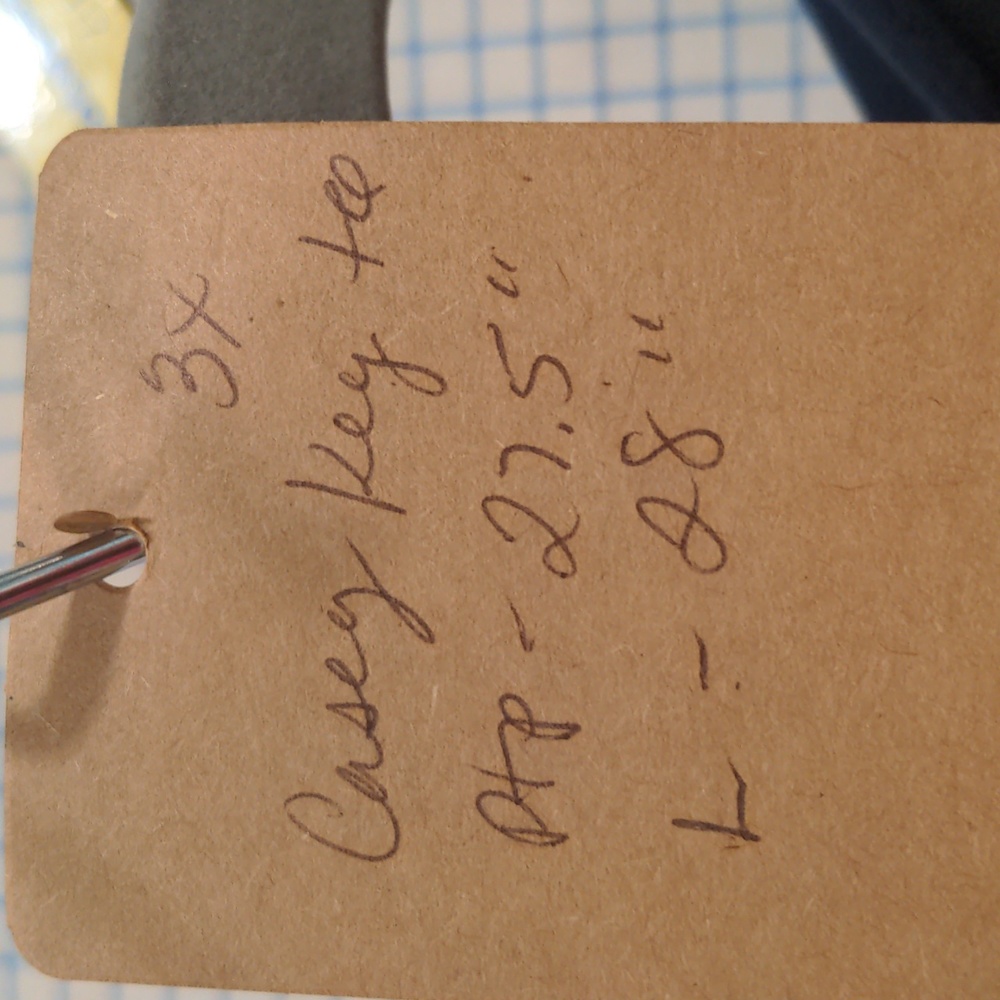 3x
Casey Key tee
Ptp - 27.5"
L - 28"